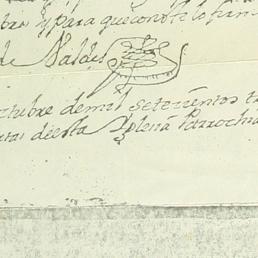 bra, y para que conste lo firm
de Valdes
ctubre de mil setecientos t
deesta Yglena Parrochi